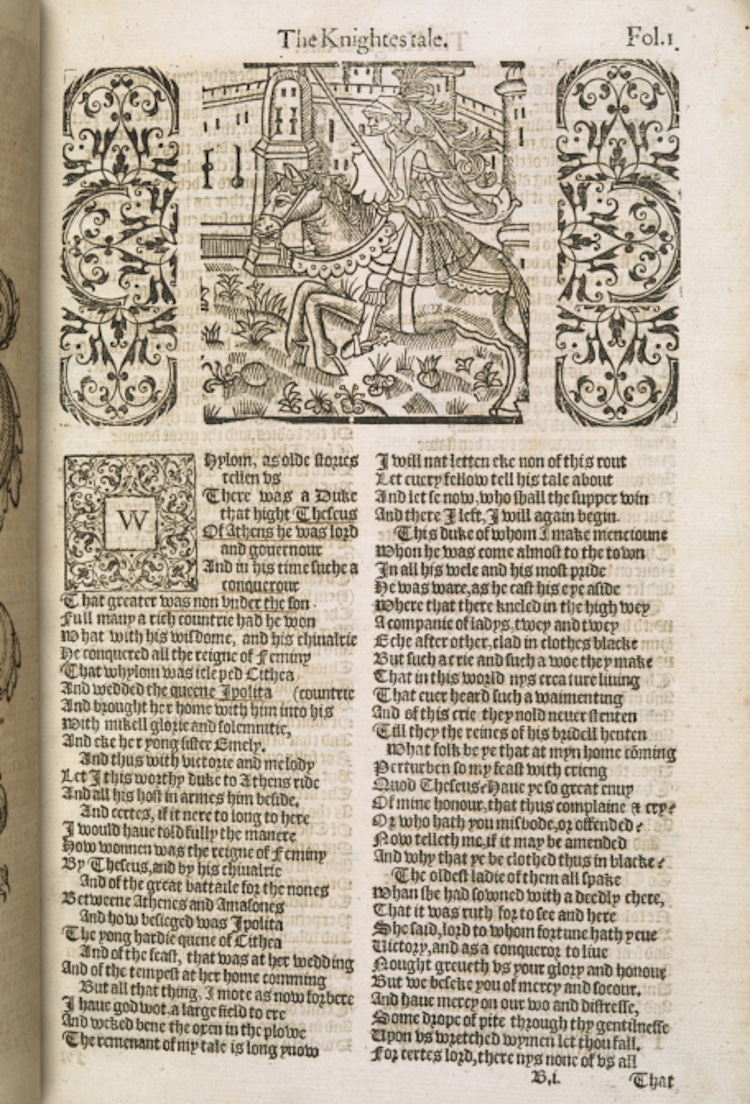 The Knightes tale.
Fol.1.
WHylom, as olde stories
tellen vs
There was a Duke
that hight Theseus
Of Athens he was lord
and gouernour
And in his time suche a
conquerour
That greater was non vnder the son
Full many a rich countrie had he won
What with his wisdome, and his chiualrie
He conquered all the reigne of Feminy
That whylom was icleped Cithea
And wedded the queene Ipolita (countrie
And brought her home with him into his
With mikell glorie and solemnitie,
And eke her yong sister Emely.
And thus with victorie and melody
Let I this worthy duke to Athens ride
And all his host in armes him beside.
And certes, if it nere to long to here
I would haue told fully the manere
How wonnen was the reigne of Feminy
By Theseus, and by his chiualrie
And of the great battaile for the nones
Betweene Athenes and Amasones
And how besieged was Ipolita
The yong hardie quene of Cithea
And of the feast, that was at her wedding
And of the tempest at her home comming
But all that thing, I mote as now forbere
I haue god wot, a large field to ere
And weked bene the oxen in the plowe
The remenant of my tale is long ynow
I will nat letten eke non of this rout
Let euery fellow tell his tale about
And let se now, who shall the supper win
And there I left, I will again begin.
This duke of whom I make mencioune
Whon he was come almost to the town
In all his wele and his most pride
He was ware, as he cast his eye aside
Where that there kneled in the high wey
A companie of ladys, twey and twey
Eche after other, clad in clothes blacke
But such a crie and such a woe they make
That in this world nys creature liuing
That euer heard such a waimenting
And of this crie they nold neuer stenten
Till they the reines of his bridell henten
What folk be ye that at myn home cõming
Perturben so my feast with crieng
Quod Theseus? Haue ye so great enuy
Of mine honour, that thus complaine & cry?
Or who hath you misbode, or offended?
Now telleth me, if it may be amended
And why that ye be clothed thus in blacke?
The oldest ladie of them all spake
Whan she had sowned with a deedly chere,
That it was ruth for to see and here
She said, lord to whom fortune hath yeue
Uictory, and as a conqueror to liue
Nought greueth vs your glory and honour
But we beseke you of mercy and socour.
And haue mercy on our wo and distresse,
Some drope of pite through thy gentilnesse
Upon vs wretched wymen let thou fall.
For certes lord, there nys none of vs all
B.i.
That